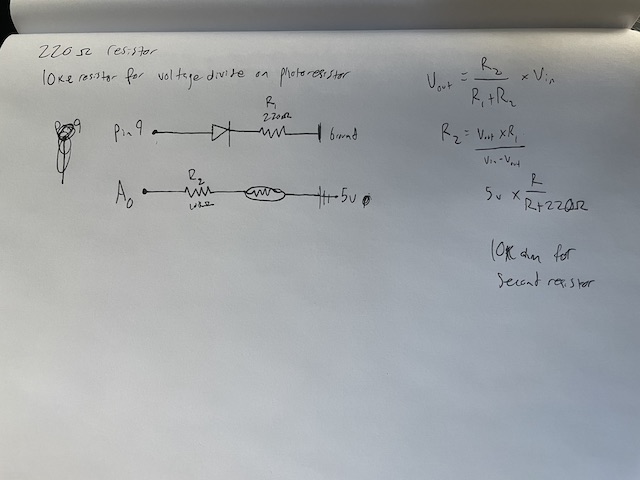 220 Ω resistor
10kΩ resistor for voltage divide on photoresistor
Pin 9
R1
220Ω
Ground
A0
R2
10kΩ
5v
Vout = R2 / R1 + R2 × Vin
R2 = Vout × R1 / Vin - Vout
5v × R / R + 220Ω
10K ohm for
second resistor